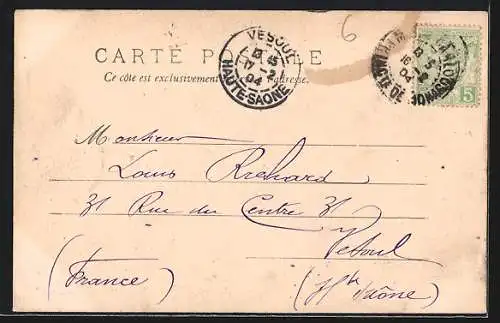 6
CARTE POSTALE
Ce côté est exclusivement adresse.
VESOUL
HAUTE-SAONE
5
Monsieur
Louis Richard
31 Rue du Centre 31
Vesoul
(France) (Hte Saône)